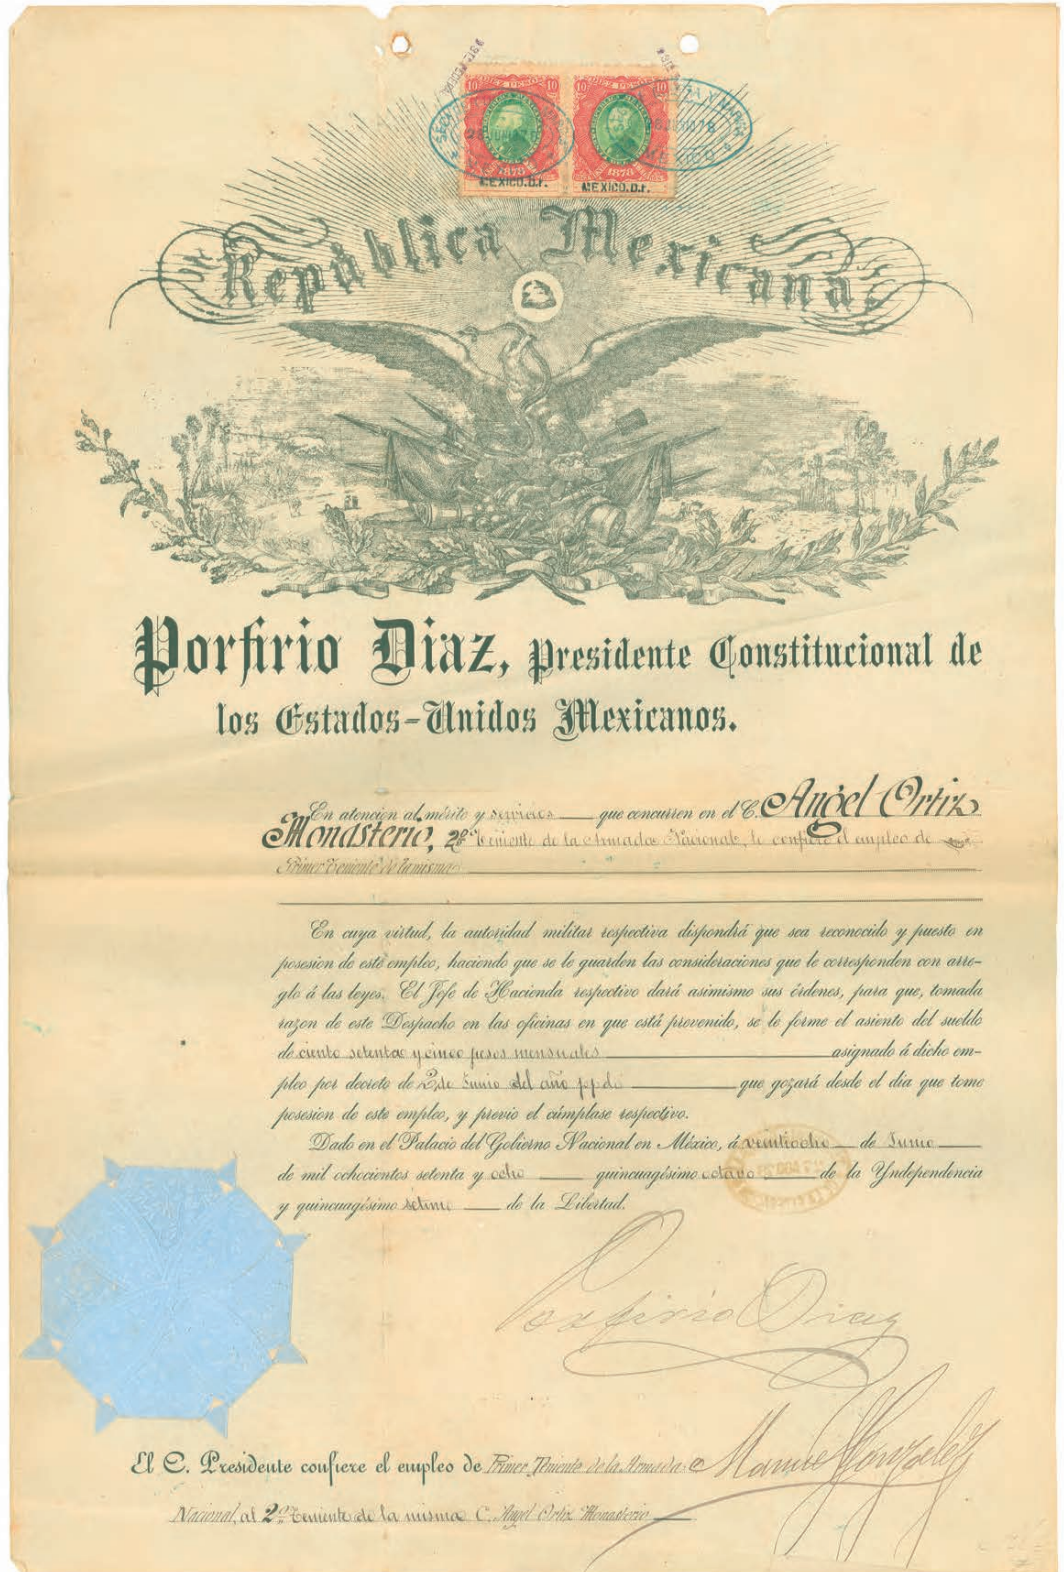 DIEZ PESOS
10 10
1878
MEXICO.D.F.
DIEZ PESOS
10 10
1878
MEXICO.D.F.
28 JUNIO 78
MEXICO
República Mexicana
Porfirio Diaz, Presidente Constitucional de
los Estados-Unidos Mexicanos.
En atencion al mérito y servicios que concurren en el C. Angel Ortiz
Monasterio, 2º Teniente de la Armada Nacional, le confiere el empleo de
Primer Teniente de la misma
En cuya virtud, la autoridad militar respectiva dispondrá que sea reconocido y puesto en
posesion de este empleo, haciendo que se le guarden las consideraciones que le corresponden con arre-
glo á las leyes. El Jefe de Hacienda respectivo dará asimismo sus órdenes, para que, tomada
razon de este Despacho en las oficinas en que está prevenido, se le forme el asiento del sueldo
de ciento setenta y cinco pesos mensuales asignado á dicho em-
pleo por decreto de 2 de Junio del año ppdo que gozará desde el dia que tome
posesion de este empleo, y previo el cúmplase respectivo.
Dado en el Palacio del Gobierno Nacional en México, á veintiocho de Junio
de mil ochocientos setenta y ocho quincuagésimo octavo de la Yndependencia
y quincuagésimo sétimo de la Libertad.
Porfirio Diaz
Manuel González
El C. Presidente confiere el empleo de Primer Teniente de la Armada
Nacional, al 2º Teniente de la misma C. Angel Ortiz Monasterio